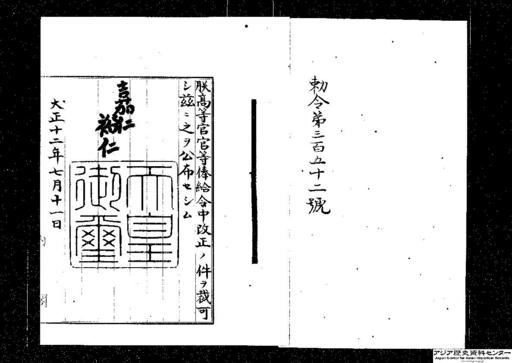 勅令第三百五十二號
朕高等官官等俸給令中改正ノ件ヲ裁可
シ茲ニ之ヲ公布セシム
嘉仁
裕仁
天皇
御璽
大正十二年七月十一日
アジア歴史資料センター
Japan Center for Asian Historical Records